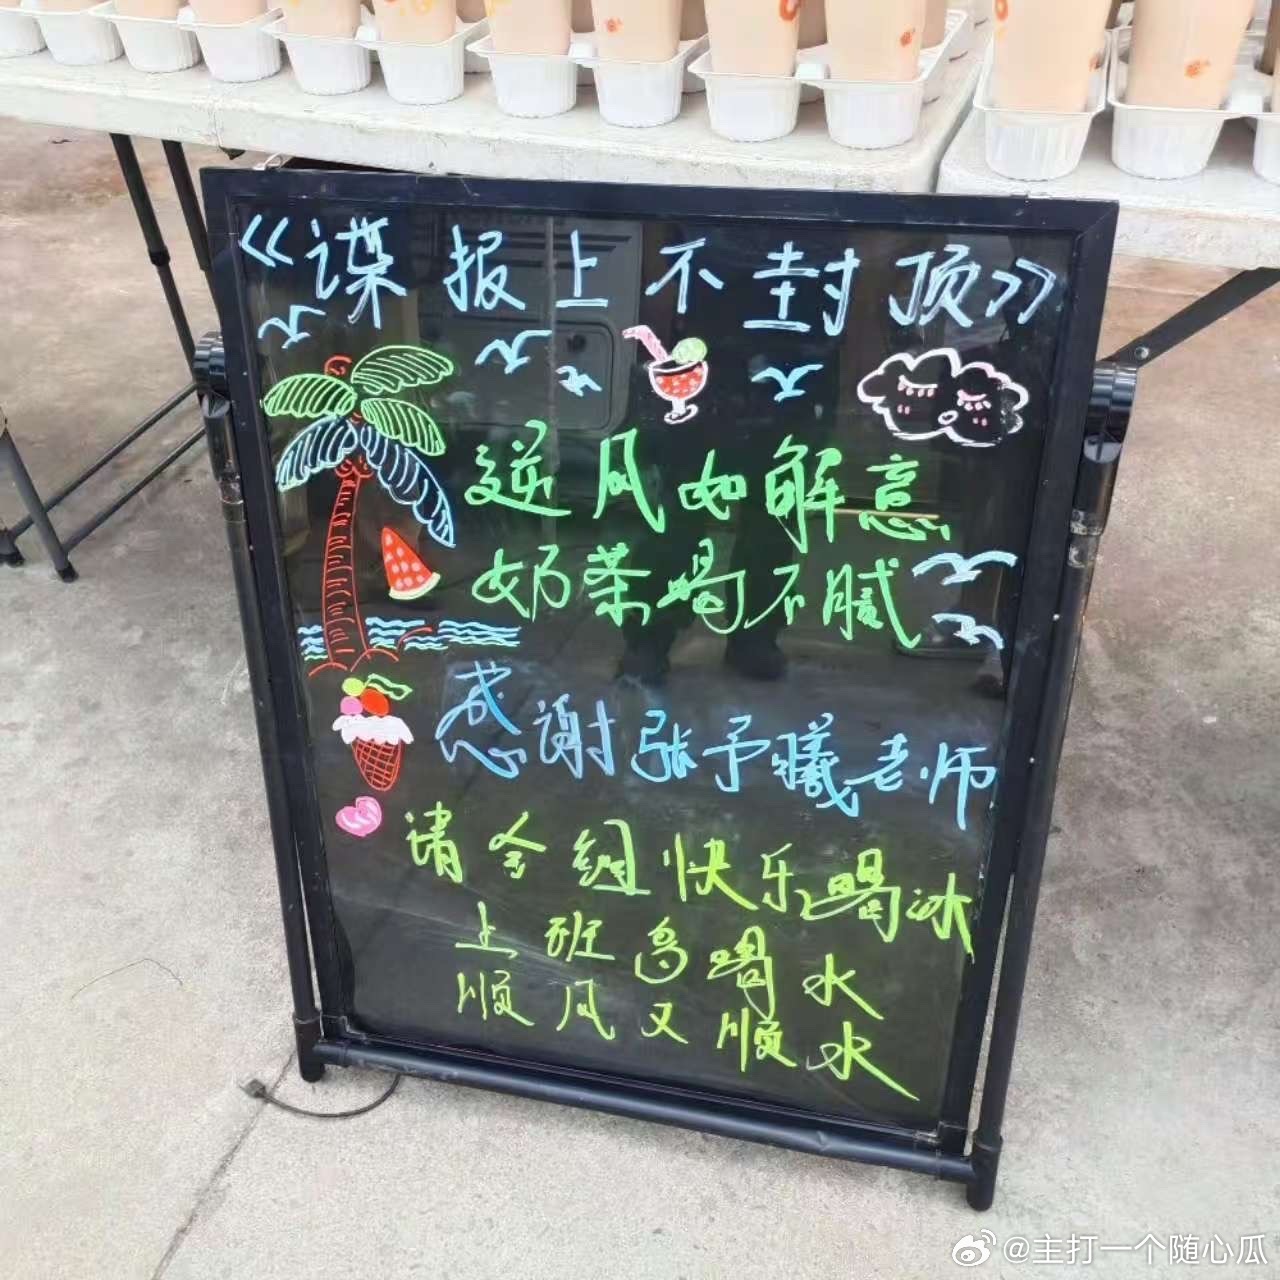 《谍报上不封顶》
逆风如解意
奶茶喝不腻
感谢张予曦老师
请全组快乐喝冰
上班多喝水
顺风又顺水
@主打一个随心瓜